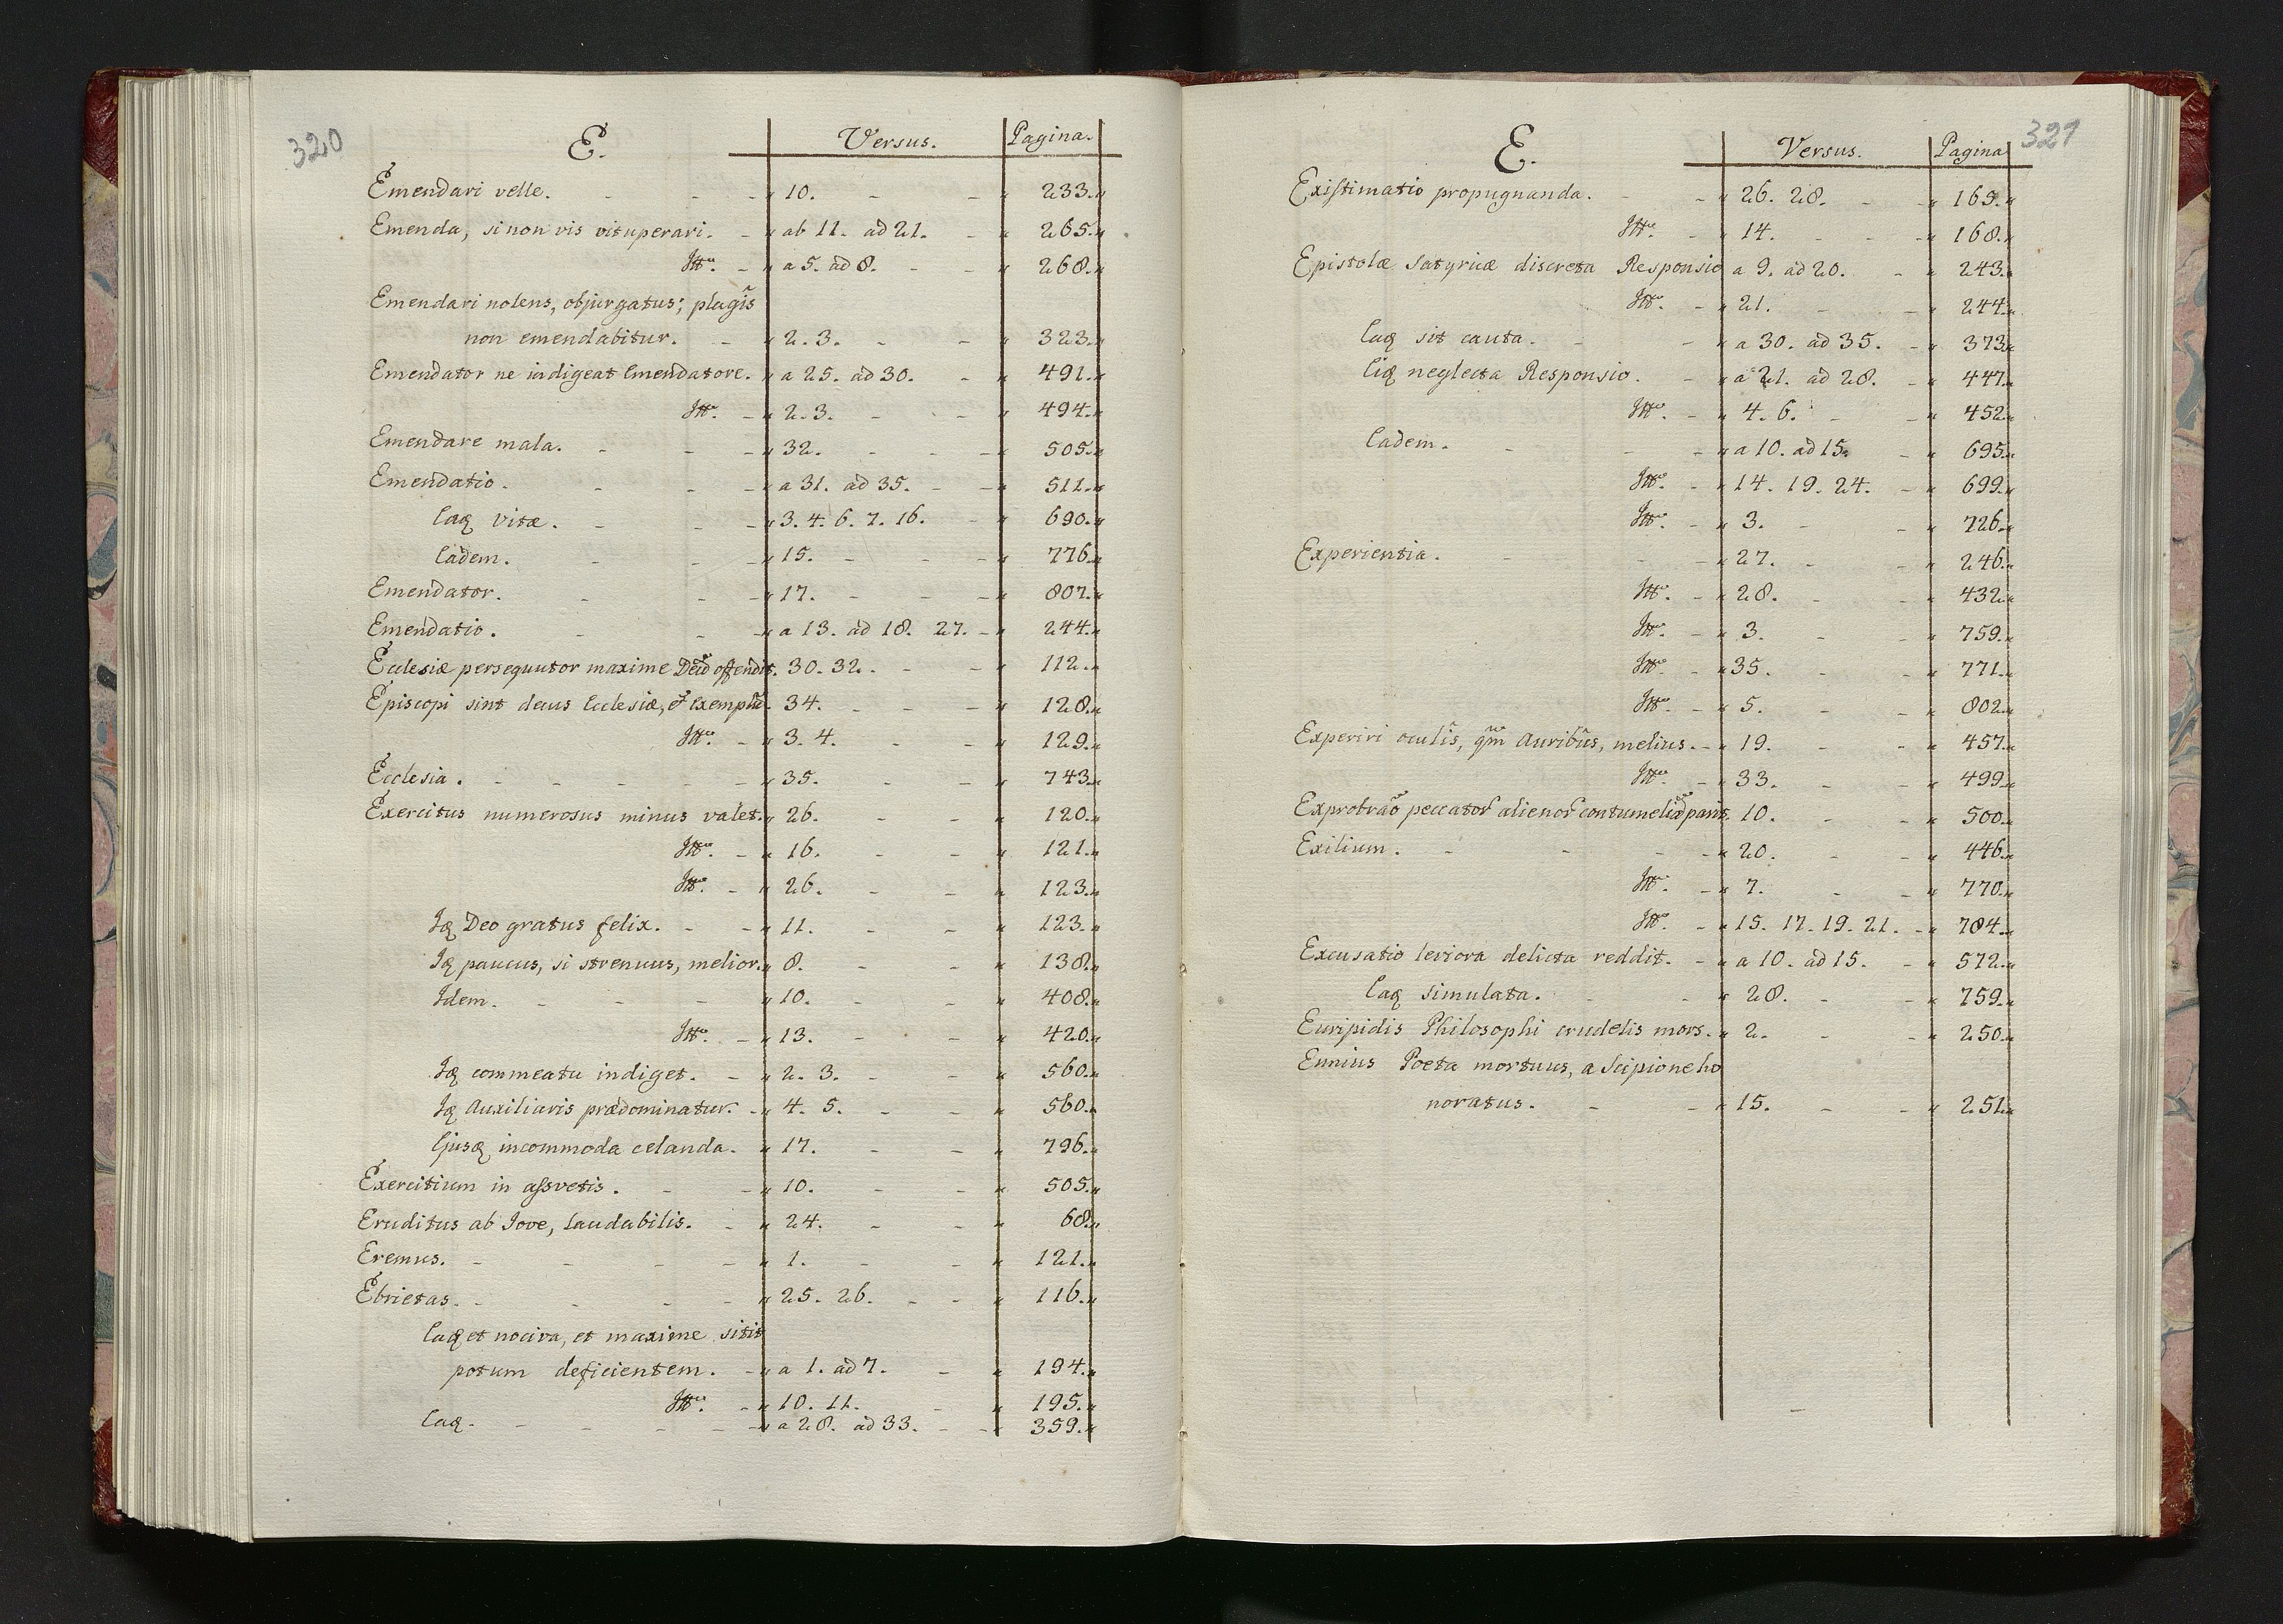 320
E. Versus. Pagina.
Emendari velle. - - - " 10. - - " 233."
Emenda, si non vis vituperari. - " ab 11. ad 21. - " 265."
Itto. - " a 5. ad 8. - - " 268."
Emendari nolens, objurgatus; plagis
non emendabitur. - " 2. 3. - - " 323."
Emendator ne indigeat Emendatore. " a 25. ad 30. - " 491."
Itto. - " 2. 3. - - " 494."
Emendare mala. - - - " 32. - - - " 505."
Emendatio. - - - " a 31. ad 35. - - " 511."
Eaq vitæ. - - - " 3. 4. 6. 7. 16. - " 690."
Eadem. - - - " 15. - - - " 776."
Emendator. - - - " 17. - - - " 807."
Emendatio. - - - " a 13. ad 18. 27. - " 244."
Ecclesiæ persequutor maxime Deũ offendit. 30. 32. - - " 112."
Episcopi sint decus Ecclesiæ, et Exemplũ. 34. - - - " 128."
Itto. - " 3. 4. - - " 129."
Ecclesia. - - - - - " 35. - - " 743."
Exercitus numerosus minus valet. " 26. - - " 120."
Itto. - " 16. - - " 121."
Itto. - " 26. - - " 123."
Iq Deo gratus felix. - - " 11. - - " 123."
Iq paucus, si strenuus, melior. " 8. - - " 138."
Idem. - - - " 10. - - " 408."
Itto. - " 13. - - " 420."
Iq commeatu indiget. - " 2. 3. - - " 560."
Iq Auxiliaris prædominatur. - " 4. 5. - - " 560."
Ejusq incommoda celanda. - " 17. - - " 796."
Exercitium in assvetis. - - " 10. - - " 505."
Eruditus ab Iove, laudabilis. - " 24. - - " 68."
Eremus. - - - - " 1. - - " 121."
Ebrietas. - - - - " 25. 26. - - " 116."
Eaq et nociva, et maxime sitit
potum deficientem. - " a 1. ad 7. - " 194."
Itto. - " 10. 11. - " 195."
Eaq. - - - - - " a 28. ad 33. - - " 359."
321
E. Versus. Pagina
Existimatio propugnanda. - - " 26. 28. - - " 169."
Itto. - " 14. - - - " 168."
Epistolæ Satyricæ discreta Responsio a 9. ad 20. - " 243."
Itto. - " 21. - - " 244."
Eaq sit cauta. - - " a 30. ad 35. - " 373."
Eiq neglecta Responsio. - " a 21. ad 28. - " 447."
Itto. - " 4. 6. - - " 452."
Eadem. - - - " a 10. ad 15. - " 695."
Itto. - " 14. 19. 24. - " 699."
Itto. - " 3. - - " 726."
Experientia. - - - " 27. - - " 246."
Itto. - " 28. - - " 432."
Itto. - " 3. - - " 759."
Itto. - " 35. - - " 771."
Itto. - " 5. - - " 802."
Experiri oculis, qm̃ Auribus, melius. - " 19. - - " 457."
Itto. - " 33. - - " 499."
Exprobrao peccator alienor contumeliã parit. 10. - - " 500."
Exilium. - - - - " 20. - - " 446."
Itto. - " 7. - - " 770."
Itto. - " 15. 17. 19. 21. - " 784."
Excusatio leviora delicta reddit. - " a 10. ad 15. - " 572."
Eaq simulata. - - " 28. - - " 759."
Euripidis Philosophi crudelis mors. - " 2. - - " 250."
Ennius Poeta mortuus, a Scipione ho
noratus. - - " 15. - - " 251."